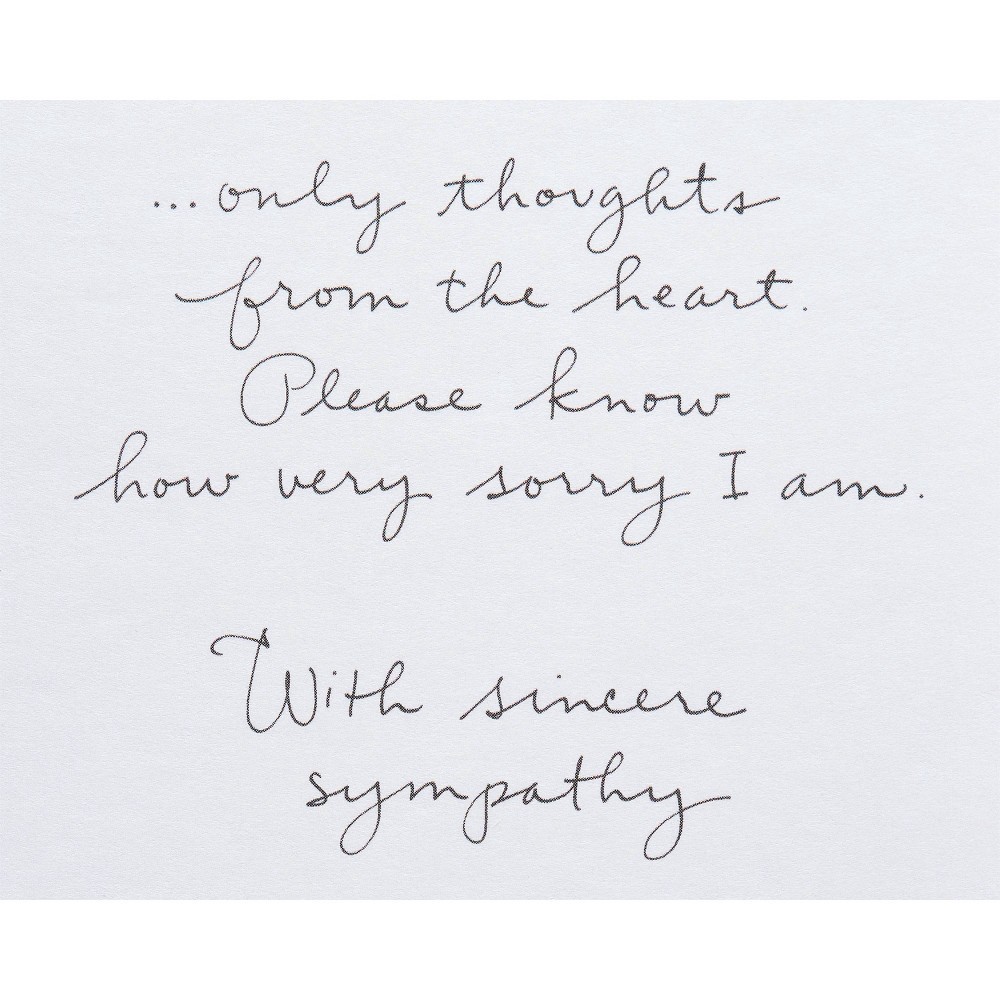 ...only thoughts
from the heart.
Please know
how very sorry I am.
With sincere
sympathy